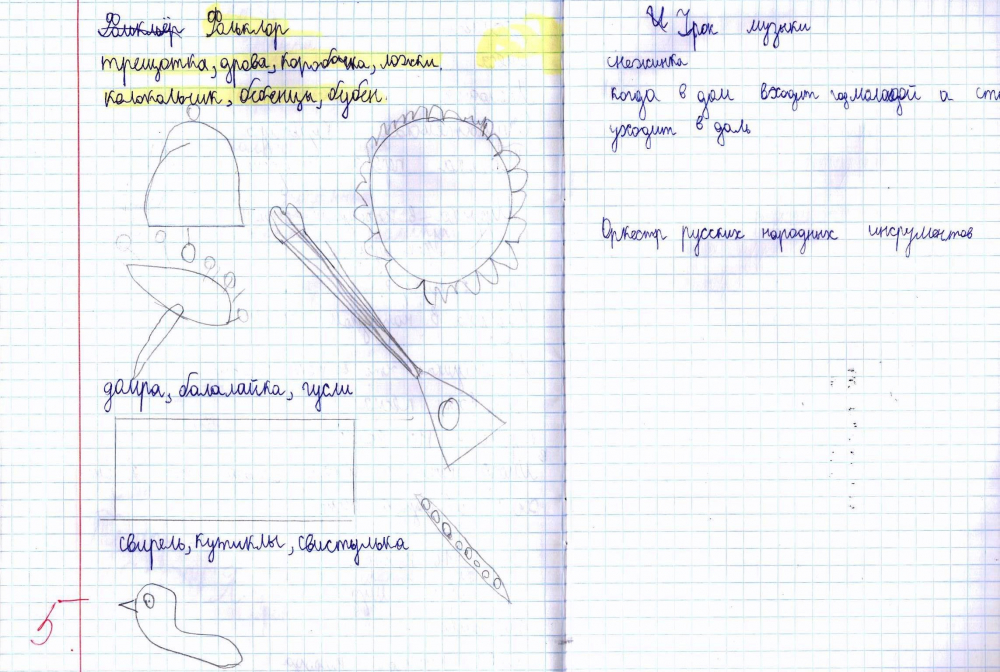 Фольклор
трещотка, дрова, коробочка, ложки.
колокольчик, бубенцы, бубен.
домра, балалайка, гусли
свирель, кугиклы, свистулька
5
Урок музыки
снежинка
когда в дом входит год молодой а ст
уходит в даль
Оркестр русских народных инсрументов